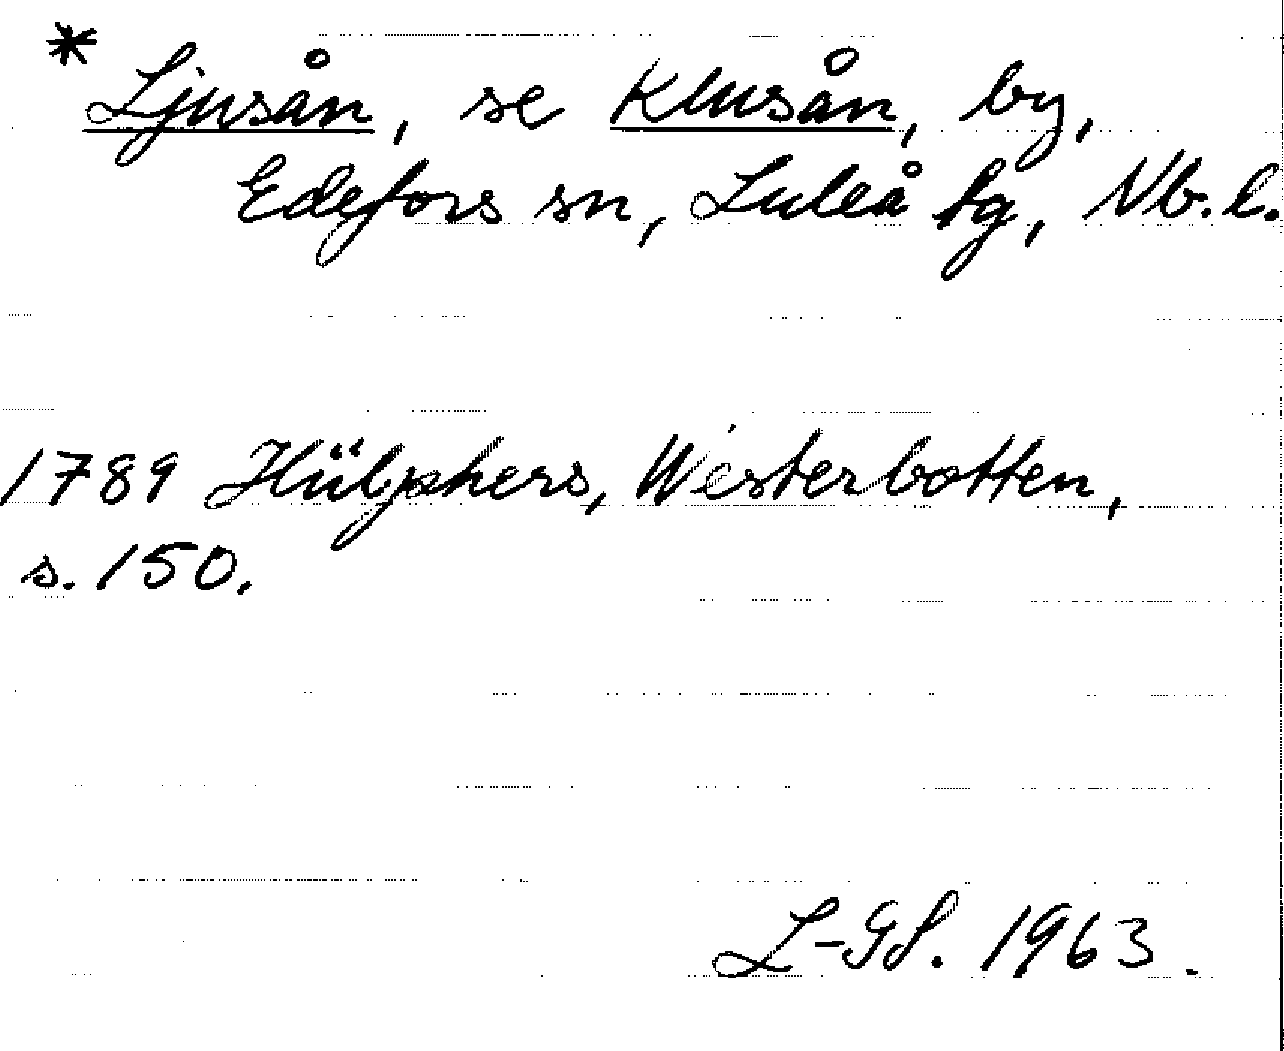 *
Ljusån, se Klusån, by,
Edefors sn, Luleå fg, Nb.l.
1789 Hülphers, Westerbotten,
s. 150.
L-GS. 1963.